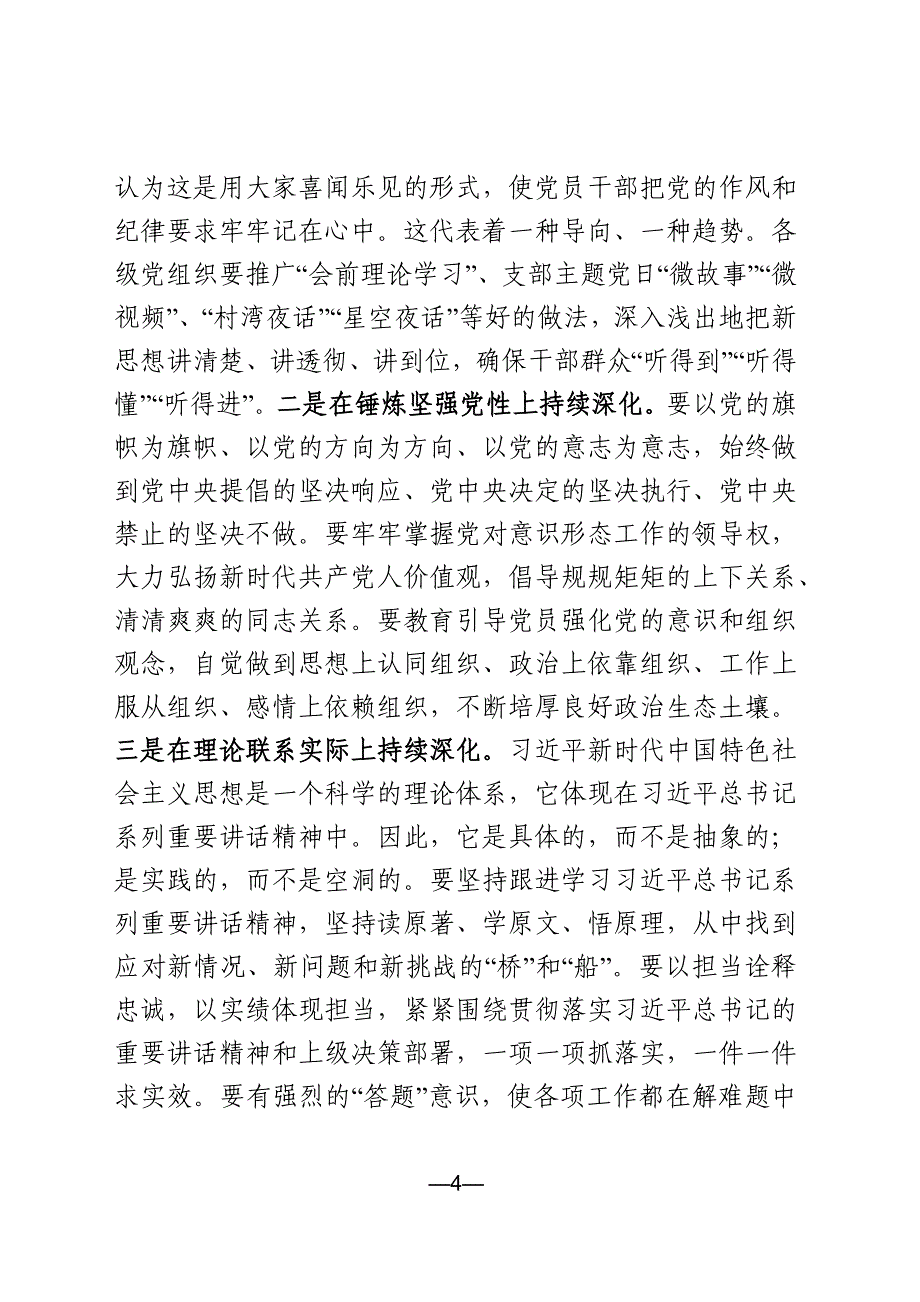 认为这是用大家喜闻乐见的形式，使党员干部把党的作风和
纪律要求牢牢记在心中。这代表着一种导向、一种趋势。各
级党组织要推广“会前理论学习”、支部主题党日“微故事”“微
视频”、“村湾夜话”“星空夜话”等好的做法，深入浅出地把新
思想讲清楚、讲透彻、讲到位，确保干部群众“听得到”“听得
懂”“听得进”。二是在锤炼坚强党性上持续深化。要以党的旗
帜为旗帜、以党的方向为方向、以党的意志为意志，始终做
到党中央提倡的坚决响应、党中央决定的坚决执行、党中央
禁止的坚决不做。要牢牢掌握党对意识形态工作的领导权，
大力弘扬新时代共产党人价值观，倡导规规矩矩的上下关系、
清清爽爽的同志关系。要教育引导党员强化党的意识和组织
观念，自觉做到思想上认同组织、政治上依靠组织、工作上
服从组织、感情上依赖组织，不断培厚良好政治生态土壤。
三是在理论联系实际上持续深化。习近平新时代中国特色社
会主义思想是一个科学的理论体系，它体现在习近平总书记
系列重要讲话精神中。因此，它是具体的，而不是抽象的；
是实践的，而不是空洞的。要坚持跟进学习习近平总书记系
列重要讲话精神，坚持读原著、学原文、悟原理，从中找到
应对新情况、新问题和新挑战的“桥”和“船”。要以担当诠释
忠诚，以实绩体现担当，紧紧围绕贯彻落实习近平总书记的
重要讲话精神和上级决策部署，一项一项抓落实，一件一件
求实效。要有强烈的“答题”意识，使各项工作都在解难题中
—4—